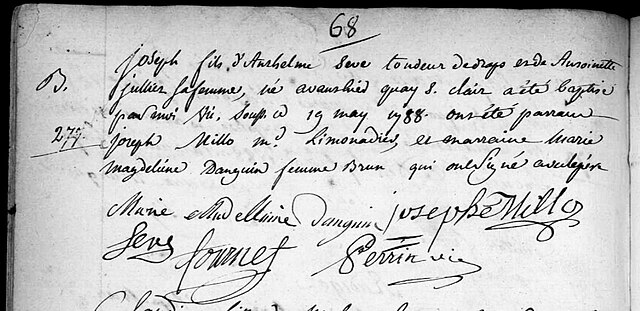 68
Joseph fils d'Anthelme Seve tondeur de draps et de Antoinette
B.
jullier sa femme, né avanthier quay S. clair a été baptisé
par moi Vic. Souss. ce 19 may 1788. ont été parrain
277
joseph Millo md. Limonadier, et marraine Marie
magdeleine Danguin femme Brun qui ont signé avec le père
Marie Madelleine Danguin josephe Millo
Seve Tournef Perrin vic